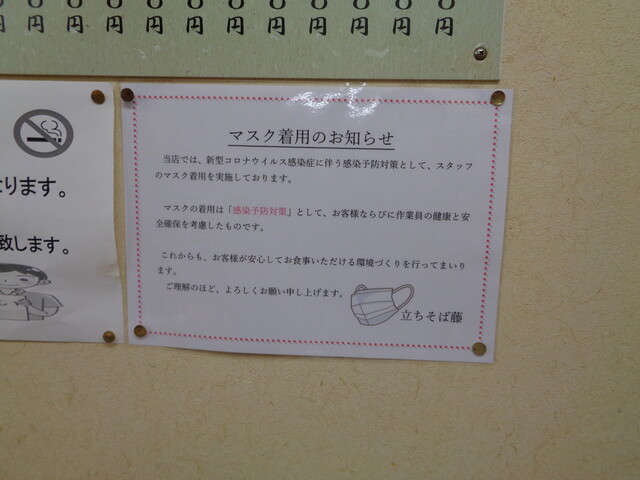 〇〇〇〇〇〇〇〇〇〇〇〇
円円円円円円円円円円円円
ります。
致します。
マスク着用のお知らせ
当店では、新型コロナウイルス感染症に伴う感染予防対策として、スタッフ
のマスク着用を実施しております。
マスクの着用は「感染予防対策」として、お客様ならびに作業員の健康と安
全確保を考慮したものです。
これからも、お客様が安心してお食事いただける環境づくりを行ってまいり
ます。
ご理解のほど、よろしくお願い申し上げます。
立ちそば藤